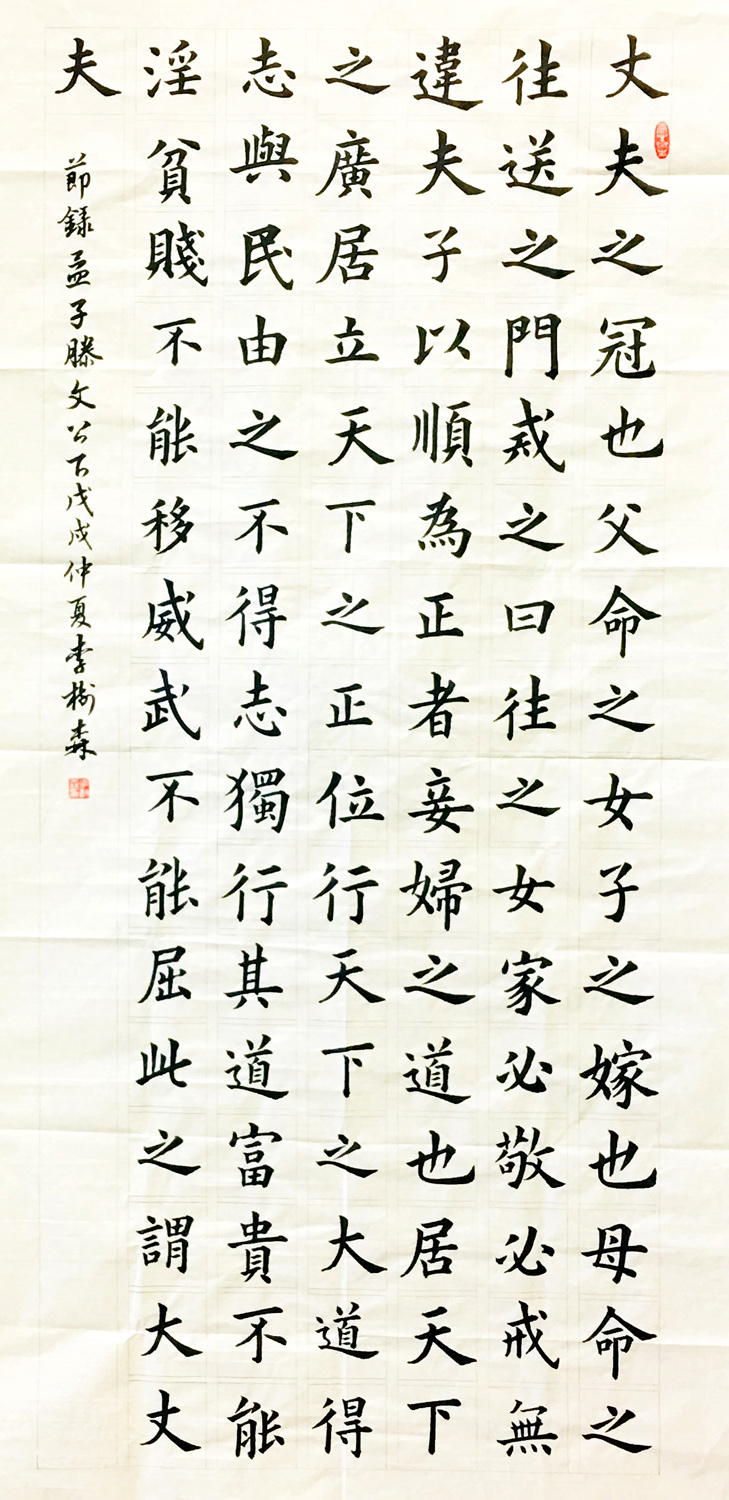 丈夫之冠也父命之女子之嫁也母命之
往送之門戒之曰往之女家必敬必戒無
違夫子以順為正者妾婦之道也居天下
之廣居立天下之正位行天下之大道得
志與民由之不得志獨行其道富貴不能
淫貧賤不能移威武不能屈此之謂大丈
夫
節錄孟子滕文公下戊戌仲夏李樹森